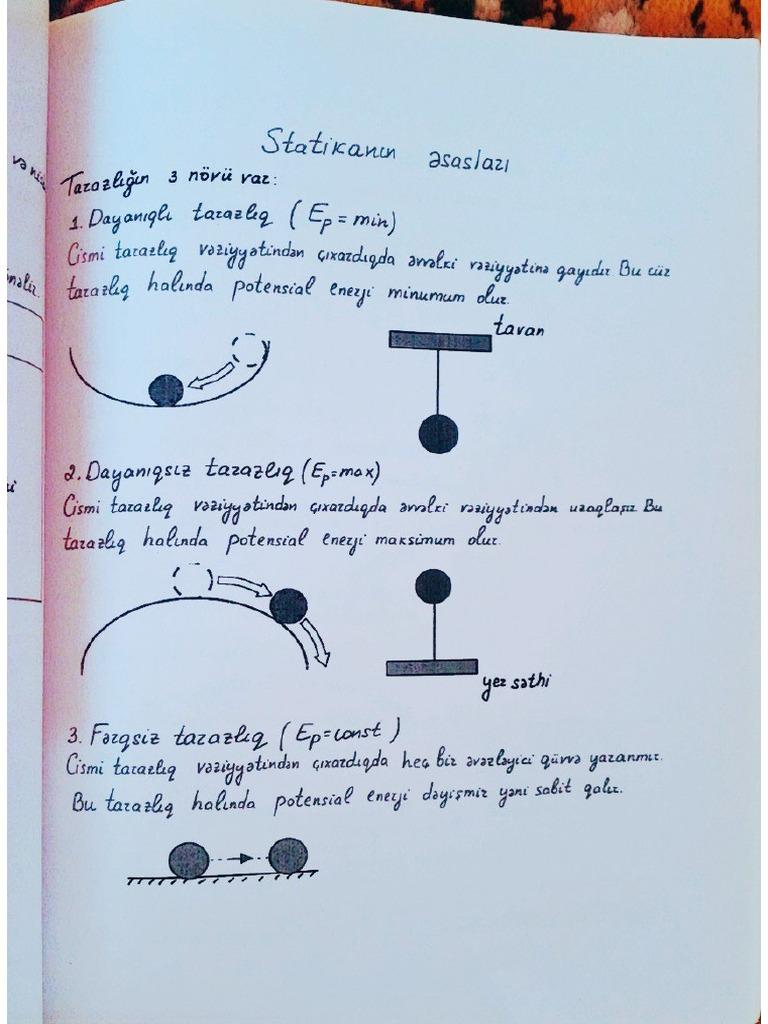 Statikanın əsasları
Tarazlığın 3 növü var:
1. Dayanıqlı tarazlıq (Ep = min)
Cismi tarazlıq vəziyyətindən çıxardıqda əvvəlki vəziyyətinə qayıdır. Bu cür
tarazlıq halında potensial enerji minumum olur.
tavan
2. Dayanıqsız tarazlıq (Ep=max)
Cismi tarazlıq vəziyyətindən çıxardıqda əvvəlki vəziyyətindən uzaqlaşır. Bu
tarazlıq halında potensial enerji maksimum olur.
yer səthi
3. Fərqsiz tarazlıq (Ep=const)
Cismi tarazlıq vəziyyətindən çıxardıqda heç bir əvəzləyici qüvvə yaranmır.
Bu tarazlıq halında potensial enerji dəyişmir yəni sabit qalır.